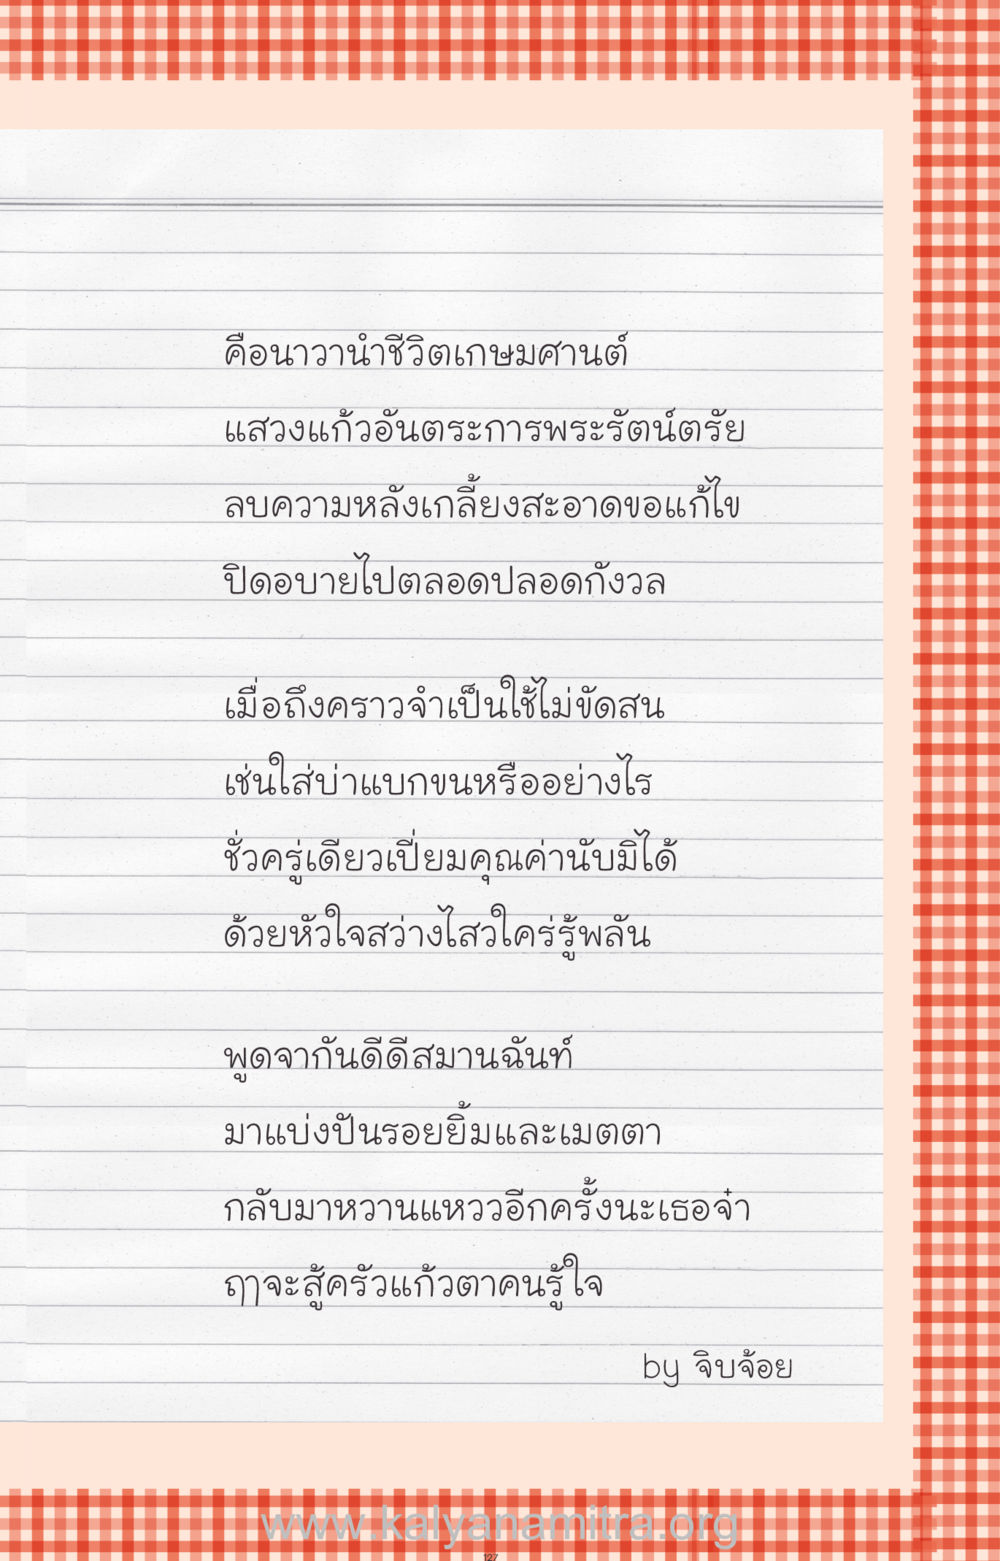 คือนาวานำชีวิตเกษมศานต์
แสวงแก้วอันตระการพระรัตน์ตรัย
ลบความหลังเกลี้ยงสะอาดขอแก้ไข
ปิดอบายไปตลอดปลอดกังวล
เมื่อถึงคราวจำเป็นใช้ไม่ขัดสน
เช่นใส่บ่าแบกขนหรืออย่างไร
ชั่วครู่เดียวเปี่ยมคุณค่านับมิได้
ด้วยหัวใจสว่างไสวใคร่รู้พลัน
พูดจากันดีดีสมานฉันท์
มาแบ่งปันรอยยิ้มและเมตตา
กลับมาหวานแหววอีกครั้งนะเธอจ๋า
ฤๅจะสู้ครัวแก้วตาคนรู้ใจ
by จิบจ้อย
www.kalyanamitra.org
127